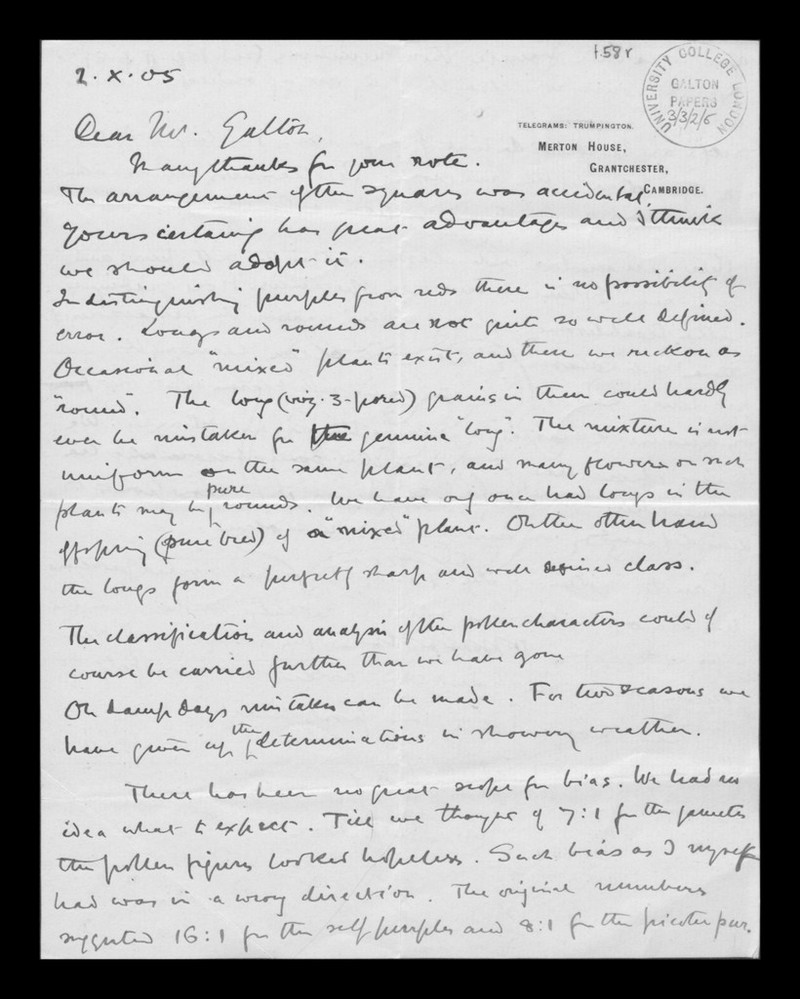 f.58r
UNIVERSITY COLLEGE LONDON
GALTON
PAPERS
3/3/2/6
2.X.05
TELEGRAMS: TRUMPINGTON.
MERTON HOUSE,
GRANTCHESTER,
CAMBRIDGE.
Dear Mr. Galton,
Many thanks for your note.
The arrangement of the squares was accidental.
Yours certainly has great advantages and I think
we should adopt it.
In distinguishing purples from reds there is no possibility of
error. Longs and rounds are not quite so well defined.
Occasional "mixed" plants exist, and these we reckon as
"round". The long (viz. 3-pored) grains in them could hardly
ever be mistaken for genuine "long". The mixture is not
uniform on the same plant, and many flowers on such
plants may be pure rounds. We have only once had longs in the
offspring (pure bred) of a "mixed" plant. On the other hand
the longs form a perfectly sharp and well defined class.
The classification and analysis of the pollen characters could of
course be carried further than we have gone
On damp days mistakes can be made. For two seasons we
have given up the determinations in showery weather.
There has been no great scope for bias. We had no
idea what to expect. Till we thought of 7:1 for the gametes
the pollen figures looked hopeless. Such bias as I myself
had was in a wrong direction. The original numbers
suggested 16:1 for the self purples and 8:1 for the picotee pur.